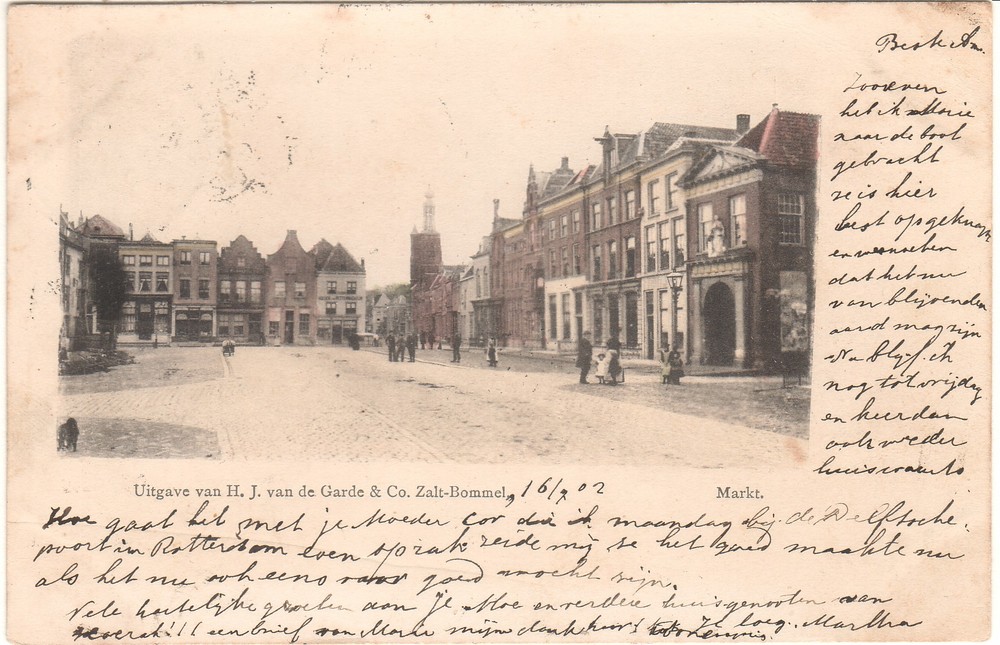 Beste
Zooeven
heb ik Marie
naar de boot
gebracht
ze is hier
best opgeknapt
en
dat het nu
van blijvenden
aard mag zijn
Nu blyf ik
nog tot vrijdag
en keer dan
ook weder
huiswaarts
Uitgave van H. J. van de Garde & Co. Zalt-Bommel, 16/ 02
Markt.
Hoe gaat het met je Moeder Cor die ik maandag bij de Delftsche
poort in Rotterdam even sprak zeide mij se het goed maakte nu
als het nu ook eens voor goed mocht zijn.
Vele hartelijke groeten aan je Moe en verdere huisgenooten van
!! een brief van Marie mijn dank Je loeg. Martha